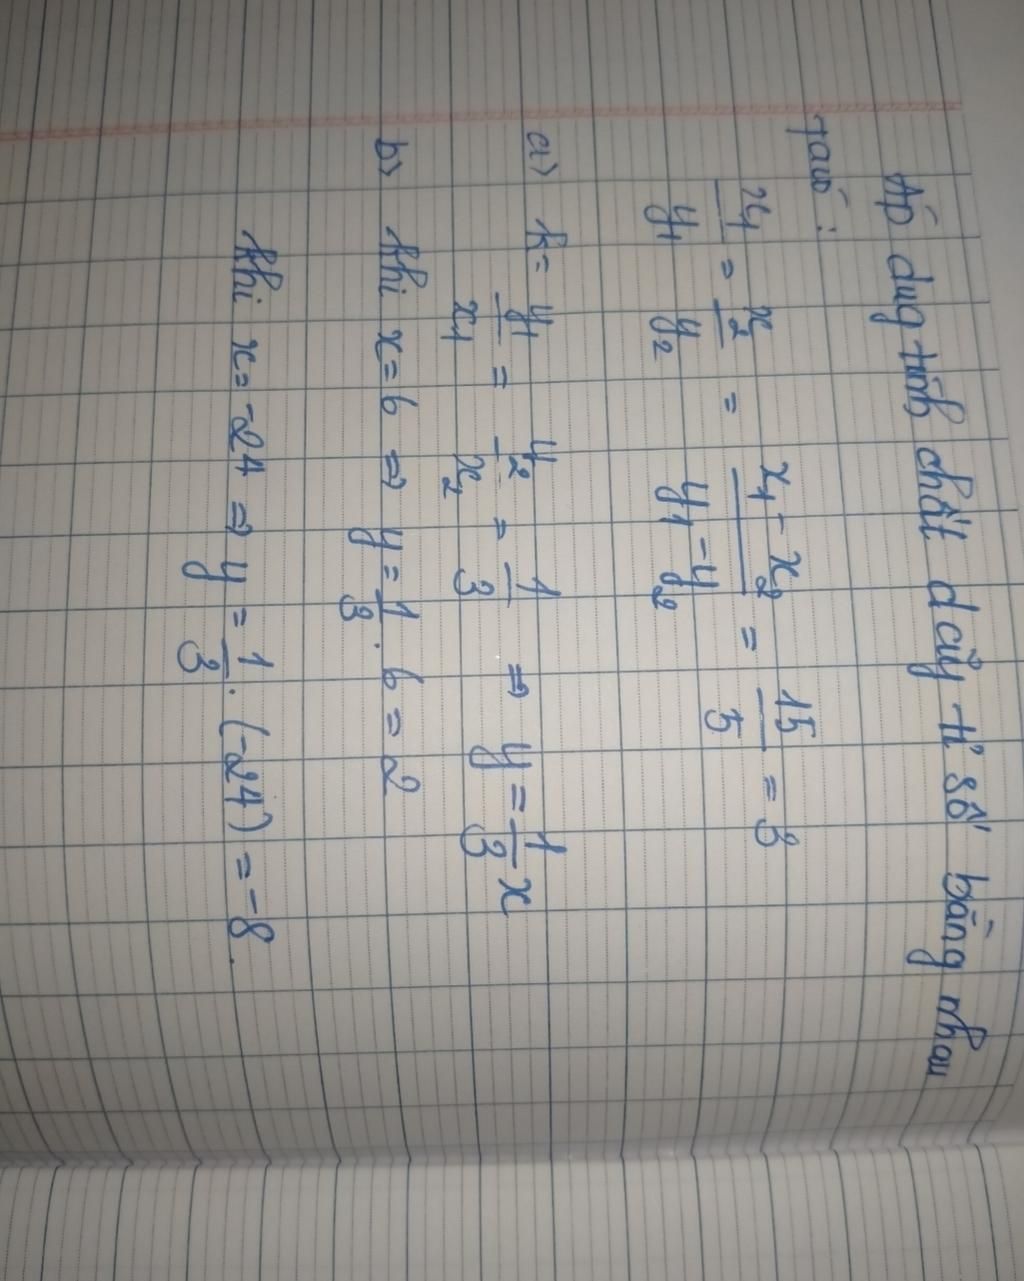 Áp dụg tính chất dãy tỉ số bằng nhau
ta có :
x₁/y₁ = x₂/y₂ = (x₁ - x₂)/(y₁ - y₂) = 15/5 = 3
a) k = y₁/x₁ = y₂/x₂ = 1/3 ⇒ y = 1/3 x
b) khi x = 6 ⇒ y = 1/3 . 6 = 2
khi x = -24 ⇒ y = 1/3 . (-24) = -8.